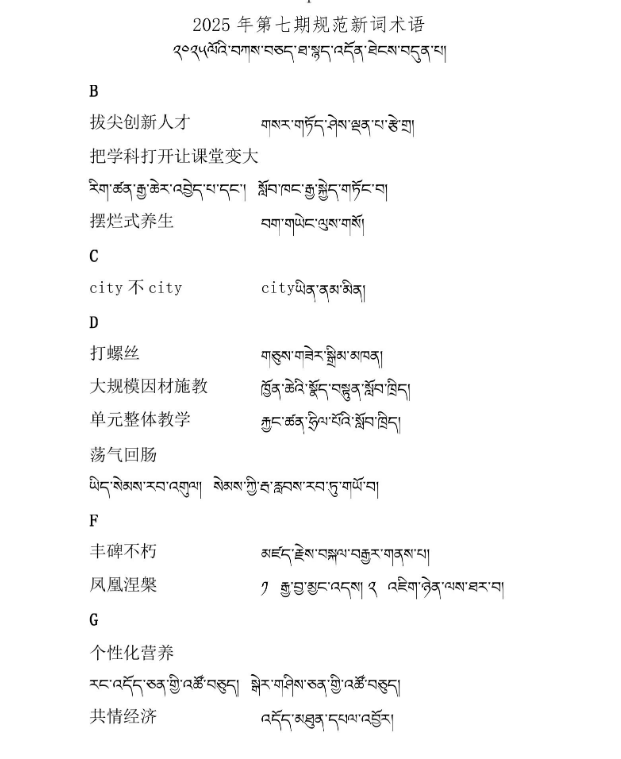 2025 年第七期规范新词术语
༢༠༢༥ལོའི་བཀས་བཅད་ཐ་སྙད་འདོན་ཐེངས་བདུན་པ།
B
拔尖创新人才 གསར་གཏོད་ཤེས་ལྡན་པ་རྩེ་གྲ།
把学科打开让课堂变大
རིག་ཚན་རྒྱ་ཆེར་འབྱེད་པ་དང་། སློབ་ཁང་རྒྱ་སྐྱེད་གཏོང་བ།
摆烂式养生 བག་གཡེང་ལུས་གསོ།
C
city 不 city cityཡིན་ནམ་མིན།
D
打螺丝 གཅུས་གཟེར་སྒྲིམ་མཁན།
大规模因材施教 ཁྱོན་ཆེའི་སྣོད་བསྟུན་སློབ་ཁྲིད།
单元整体教学 རྐྱང་ཚན་ཧྲིལ་པོའི་སློབ་ཁྲིད།
荡气回肠
ཡིད་སེམས་རབ་འགུལ། སེམས་ཀྱི་རྦ་རླབས་རབ་ཏུ་གཡོ་བ།
F
丰碑不朽 མཛད་རྗེས་བསྐལ་བརྒྱར་གནས་པ།
凤凰涅槃 ༡ རྒྱ་བྱ་མྱང་འདས། ༢ འཇིག་རྟེན་ལས་ཐར་བ།
G
个性化营养
རང་འདོད་ཅན་གྱི་འཚོ་བཅུད། སྒེར་གཤིས་ཅན་གྱི་འཚོ་བཅུད།
共情经济 འདོད་མཐུན་དཔལ་འབྱོར།